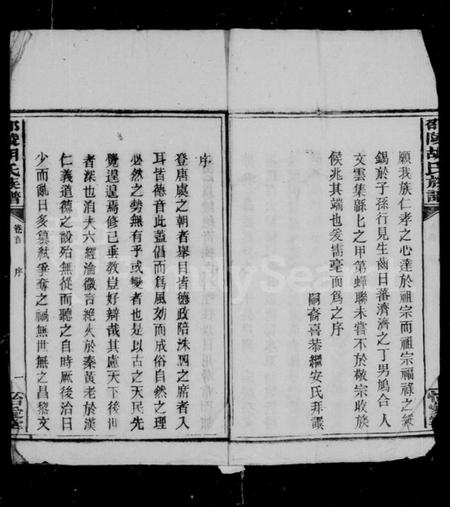 邵陵胡氏族譜
願我族仁孝之心達於祖宗而祖宗福祿之
錫於子孫行見生齒日蕃濟濟之丁男鳩合人
文雲集緜匕之甲第蟬聯未嘗不於敬宗收族
候兆其端也爰濡毫而為之序
嗣裔喜恭繼安氏拜譔
序
登唐虞之朝者舉目皆德政陪洙泗之席者入
耳皆德音此蓋倡而爲風効而成俗自然之理
必然之勢無有乎或變者也是以古之天民先
覺遑遑焉修己垂教豈好辯哉其慮天下後世
者深也洎夫六經淪微言絶火於秦黃老於漢
仁義道德之說殆無從而聽之自時厥後治日
少而亂日多篡弒爭奪之禍無世無之昌黎文
邵陵胡氏族譜
卷首
序
一